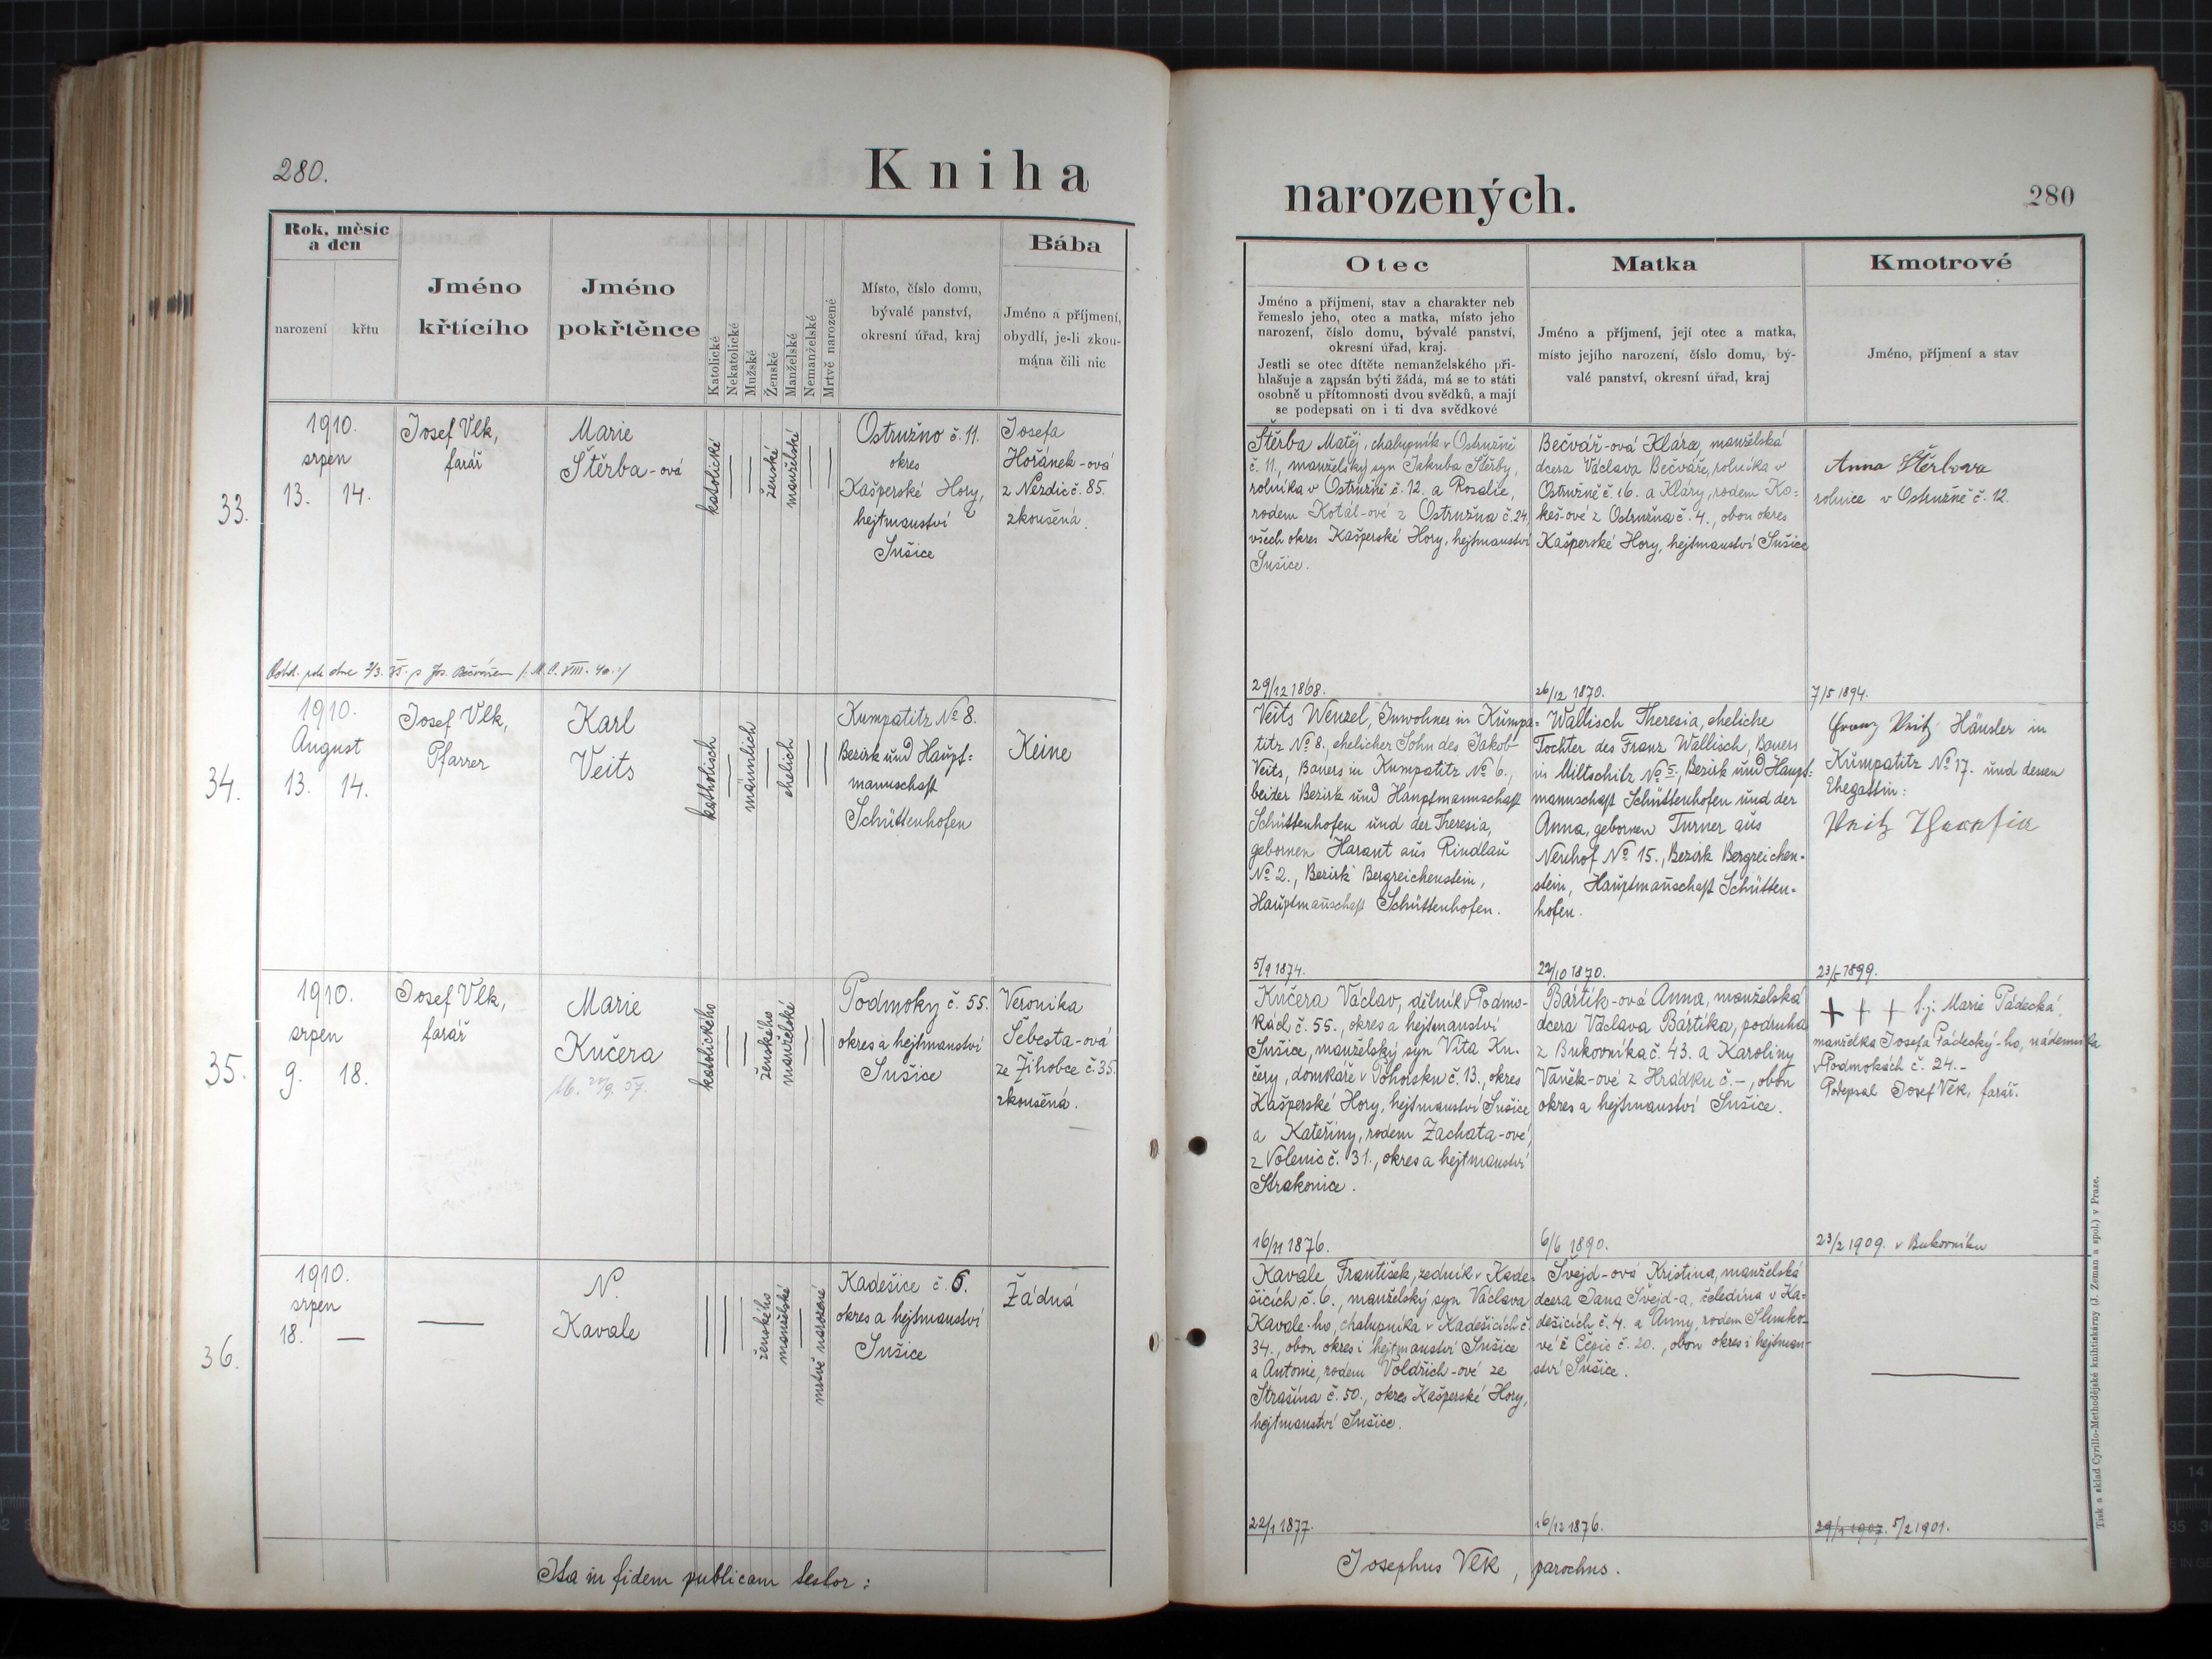 280.
Kniha
narozených.
280
Rok, měsíc
a den
narození
křtu
Jméno
křtícího
Jméno
pokřtěnce
Katolické
Nekatolické
Mužské
Ženské
Manželské
Nemanželské
Mrtvě narozené
Místo, číslo domu,
bývalé panství,
okresní úřad, kraj
Bába
Jméno a příjmení,
obydlí, je-li zkou-
mána čili nic
Otec
Jméno a příjmení, stav a charakter neb
řemeslo jeho, otec a matka, místo jeho
narození, číslo domu, bývalé panství,
okresní úřad, kraj.
Jestli se otec dítěte nemanželského při-
hlašuje a zapsán býti žádá, má se to státi
osobně u přítomnosti dvou svědků, a mají
se podepsati on i ti dva svědkové
Matka
Jméno a příjmení, její otec a matka,
místo jejího narození, číslo domu, bý-
valé panství, okresní úřad, kraj
Kmotrové
Jméno, příjmení a stav
33.
1910.
srpen
13. 14.
Josef Vlk,
farář
Marie
Štěrba-ová
katolické
ženské
manželské
Ostružno č. 11.
okres
Kašperské Hory,
hejtmanství
Sušice
Josefa
Hořánek-ová
z Nezdic č. 85.
zkoušená.
Štěrba Matěj, chalupník v Ostružně
č. 11., manželský syn Jakuba Štěrby,
rolníka v Ostružně č. 12. a Rosalie,
rodem Kotál-ové z Ostružna č. 24,
všech okres Kašperské Hory, hejtmanství
Sušice.
29/12 1868.
Bečvář-ová Klára, manželská
dcera Václava Bečváře, rolníka v
Ostružně č. 16. a Kláry, rodem Ko=
keš-ové z Ostružna č. 4., obou okres
Kašperské Hory, hejtmanství Sušice
26/12 1870.
Anna Štěrbova
rolnice v Ostružně č. 12.
7/5 1894.
34.
1910.
August
13. 14.
Josef Vlk,
Pfarrer
Karl
Veits
katholisch
männlich
ehelich
Kumpatitz No 8.
Bezirk und Haupt=
mannschaft
Schüttenhofen
Keine
Veits Wenzel, Inwohner in Kumpa=
titz No 8., ehelicher Sohn des Jakob
Veits, Bauers in Kumpatitz No 6.,
beider Bezirk und Hauptmannschaft
Schüttenhofen und der Theresia,
gebornen Harant aus Rindlau
No 2., Bezirk Bergreichenstein,
Hauptmannschaft Schüttenhofen.
5/9 1874.
Wallisch Theresia, eheliche
Tochter des Franz Wallisch, Bauers
in Miltschitz No 5., Bezirk und Haupt=
mannschaft Schüttenhofen und der
Anna, gebornen Turner aus
Neuhof No 15., Bezirk Bergreichen-
stein, Hauptmannschaft Schütten=
hofen.
22/10 1870.
Franz Veitz Häusler in
Kumpatitz No 17. und dessen
Ehegattin:
Veitz
23/5 1899.
35.
1910.
srpen
9. 18.
Josef Vlk,
farář
Marie
Kučera
katolického
ženského
manželské
Podmoky č. 55.
okres a hejtmanství
Sušice
Veronika
Šebesta-ová
ze Žihobce č. 35.
zkoušená.
Kučera Václav, dělník v Podmo-
kách č. 55., okres a hejtmanství
Sušice, manželský syn Víta Ku-
čery, domkáře v Pohorsku č. 13., okres
Kašperské Hory, hejtmanství Sušice
a Kateřiny, rodem Zachata-ové,
z Volenic č. 31., okres a hejtmanství
Strakonice.
16/11 1876.
Bártík-ová Anna, manželská
dcera Václava Bártíka, podruha
z Bukovníka č. 43. a Karoliny
Vaněk-ové z Hrádku č. –, obou
okres a hejtmanství Sušice.
6/6 1890.
+ + + t. j. Marie Pádecká,
manželka Josefa Pádecký-ho, nádeníka
v Podmokách č. 24.-
Podepsal Josef Vlk, farář.
23/2 1909. v Bukovníku
36.
1910.
srpen
18. —
N.
Kavale
ženského
manželské
mrtvě narozené
Kadešice č. 6.
okres a hejtmanství
Sušice
Žádná
Kavale František, zedník v Kade-
šicích č. 6., manželský syn Václava
Kavale-ho, chalupníka v Kadešicích č.
34., obou okres i hejtmanství Sušice
a Antonie, rodem Voldřich-ové ze
Strašína č. 50., okres Kašperské Hory,
hejtmanství Sušice.
22/1 1877.
Švejd-ová Kristina, manželská
dcera Jana Švejd-a, čeledína v Ka-
dešicích č. 4. a Anny, rodem Slimko-
vé z Čepic č. 20., obou okres i hejtman-
ství Sušice.
16/12 1876.
29/1 1907. 5/2 1901.
Ita in fidem publicam testor:
Josephus Vlk, parochus.
Tisk a sklad Cyrillo-Methodějské knihtiskárny (J. Zeman a spol.) v Praze.